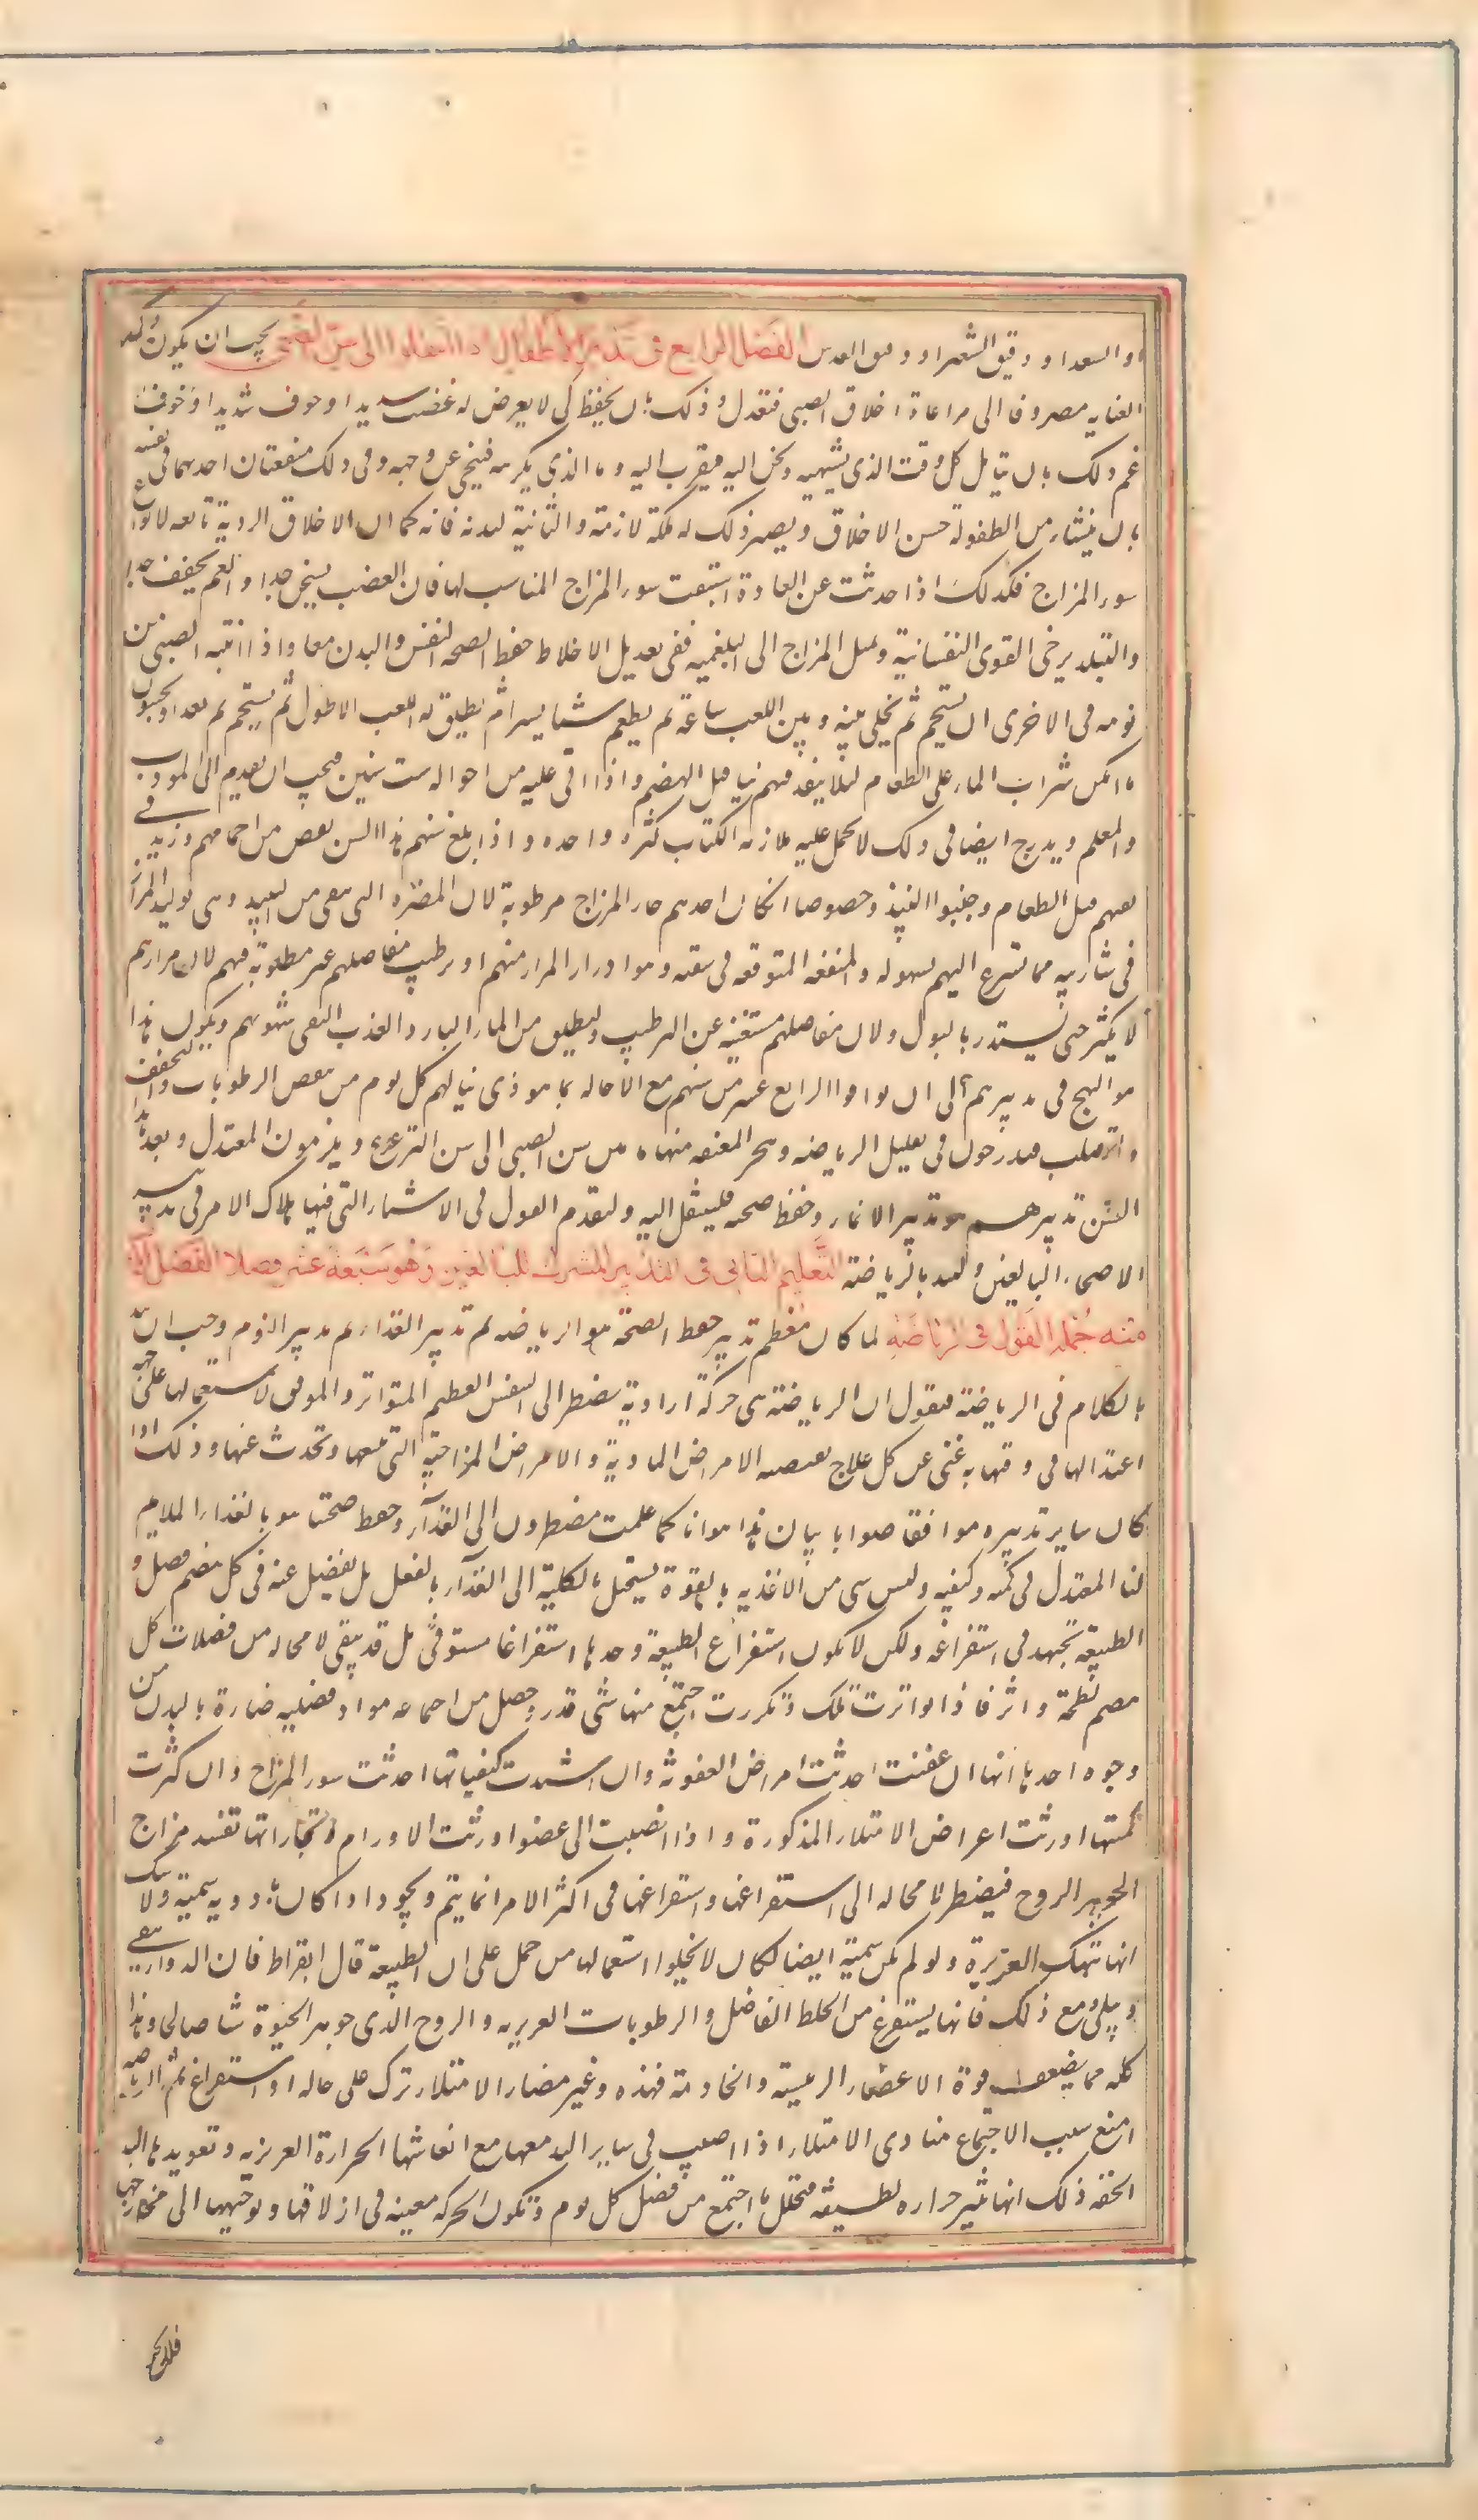 او السعد او دقيق الشعير او دقيق العدس الفصل الرابع في تدبير الاطفال اذا انتقلوا الى سن الصبى يجب ان يكون وكد
العنايه مصروفا الى مراعاة اخلاق الصبى فتعدل وذلك بان يحفظ كى لا يعرض له غضب شديد او خوف شديد او خوف
غم وذلك بان يتامل كل وقت الذى يشتهيه ويحن اليه فيقرب اليه وما الذى يكرهه فينحى عن وجهه وفى ذلك منفعتان احدهما فى نفسه
بان ينشاء من الطفولة حسن الاخلاق ويصير ذلك له ملكة لازمة والثانية لبدنه فانه كما ان الاخلاق الردية تابعه لانواع
سوء المزاج فكذلك اذا حدثت عن العادة استتبعت سوء المزاج المناسب لها فان الغضب يسخن جدا والغم يجفف جدا
والتبلد يرخى القوى النفسانية ويميل المزاج الى البلغميه ففى تعديل الاخلاط حفظ الصحه لنفس والبدن معا واذا انتبه الصبى من
نومه فى الاخرى ان يستحم ثم يخلى بينه وبين اللعب ساعة ثم يطعم شيا يسيرا ثم يطلق له اللعب الاطول ثم يستحم ثم يغدا ويجنبون
ما امكن شراب الماء على الطعام لئلا ينفذ فيهم نيا قبل الهضم واذا اتى عليه من احواله ست سنين فيجب ان يقدم الى المودب
والمعلم ويدرج ايضا فى ذلك لا يحمل عليه ملازمه الكتاب كثره واحده واذا بلغ سنهم هذا السن نقص من احمامهم وزيد فى
تعبهم قبل الطعام وجنبوا النبيذ وخصوصا ان كان احدهم حار المزاج مرطوبة لان المضره التى تبقى من النبيذ وهى توليد المرار
فى شاربيه مما تسرع اليهم بسهوله والمنفعه المتوقعه فى سقيه وهو ادرار المرار منهم او ترطيب مفاصلهم غير مطلوبة فيهم لان مرارهم
لا يكثر حتى يستدر بالبول ولان مفاصلهم مستغنيه عن الترطيب وليطلق من الماء البارد العذب النقى شهوتهم ويكون هذا
هو النهج فى تدبيرهم الى ان يوافوا الرابع عشر من سنهم مع الاحاله بما هو ذى نيا لهم كل يوم من نقص الرطوبات والتجفف
والتصلب فيدرجون فى تقليل الرياضه وهجر المعنفه منها ما بين سن الصبى الى سن الترعرع ويلزمون المعتدل وبعد هذا
السن تدبيرهم هو تدبير الانماء وحفظ صحته فلينتقل اليه ولنقدم القول فى الاشياء التى فيها ملاك الامر فى تدبير
الاصحاء البالغين ولنبد بالرياضة التعليم الثانى فى التدبير المشترك للبالغين وهو سبعة عشر فصلا الفصل الاول
منه جملة القول فى الرياضة لما كان معظم تدبير حفظ الصحة هو الرياضه ثم تدبير الغذاء ثم تدبير النوم وجب ان نبد
بالكلام فى الرياضة فنقول ان الرياضة هى حركة ارادية يضطر الى التنفس العظيم المتواتر والموفق لاستعمالها على جهة
اعتدالها فى وقتها به غنى عن كل علاج يقتضيه الامراض المادية والامراض المزاجية التى تتبعها وتحدث عنها وذلك اذا
كان ساير تدبيره موافقا صوابا بيان هذا هو انا كما علمت مضطرون الى الغذآء وحفظ صحتنا هو بالغذاء الملايم
لنا المعتدل فى كمه وكيفه وليس شى من الاغذيه بالقوة يستحيل بالكلية الى الغذآء بالفعل بل يفضل عنه فى كل هضم فضل و
الطبيعة تجتهد فى استفراغه ولكن لا يكون استفراغ الطبيعة وحدها استفراغا مستوفى بل قد يبقى لا محاله من فضلات كل
هضم لطخة واثر فاذا تواترت تلك وتكررت اجتمع منها شى قدر وحصل من اجماعه مواد فضليه ضارة بالبدن من
وجوه احدها انها ان عفنت احدثت امراض العفونة وان اشتدت كيفياتها احدثت سوء المزاج وان كثرت
كميتها اورثت اعراض الامتلاء المذكورة واذا انصبت الى عضو اورثت الاورام وبخاراتها تفسد مزاج
الجوهر الروح فيضطر لا محاله الى استفراغها واستفراغها فى اكثر الامر انما يتم ويجود اذا كان بادويه سمية ولا شك
انها تنهك الغريزة ولو لم يكن سمية ايضا لكان لا يخلوا استعمالها من حمل على ان الطبيعة قال ابقراط فان الدواء ينقى
وبلى ومع ذلك فانها يستفرغ من الخلط الفاضل والرطوبات الغريزيه والروح الذى جوهر الحيوة شا صالحا وهذا
كله مما يضعف قوة الاعضاء الرئيسة والخادمة فهذه وغير مضار الامتلاء ترك على حاله او استفراغ ثم الرياضه
امنع سبب الاجتماع مبادى الامتلاء اذا اصيب فى ساير التدبير معها مع انعاشها الحرارة الغريزيه وتعويدها البدن
الخفه ذلك انها تثير حراره لطيفه فتحلل ما اجتمع من فضل كل يوم وتكون الحركه معينه فى ازلاقها وتوجيهها الى مخارجها